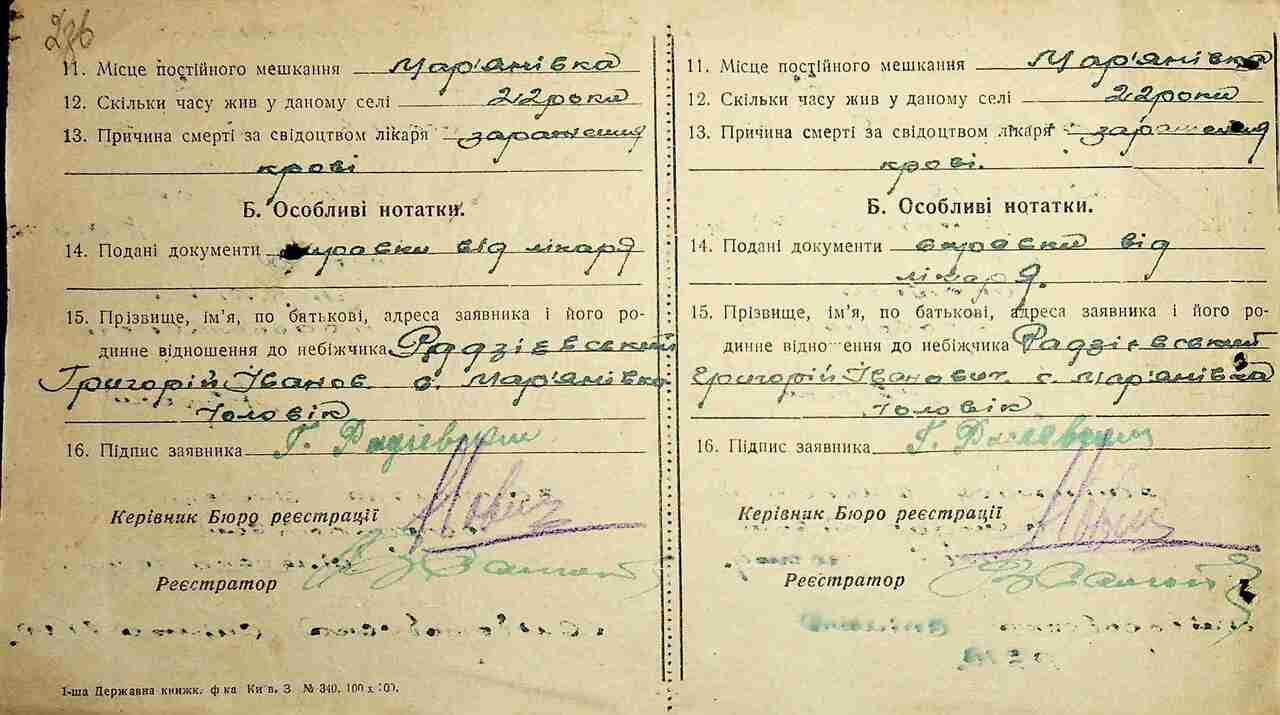 236
11. Місце постійного мешкання Мар'янівка
12. Скільки часу жив у даному селі 22 роки
13. Причина смерті за свідоцтвом лікаря зараження
крові
Б. Особливі нотатки.
14. Подані документи від лікаря
15. Прізвище, ім'я, по батькові, адреса заявника і його ро-
динне відношення до небіжчика Радзієвський
Григорій Іванов. с. Мар'янівка
чоловік
16. Підпис заявника Г. Радзієвський
Керівник Бюро реєстрації
Реєстратор
1-ша Державна книжк. ф-ка Київ. З. № 340. 100 х 100.
11. Місце постійного мешкання Мар'янівка
12. Скільки часу жив у даному селі 22 роки
13. Причина смерті за свідоцтвом лікаря зараження
крові.
Б. Особливі нотатки.
14. Подані документи від
лікаря.
15. Прізвище, ім'я, по батькові, адреса заявника і його ро-
динне відношення до небіжчика Радзієвський
Григорій Іванович с. Мар'янівка
чоловік
16. Підпис заявника Г.
Керівник Бюро реєстрації
Реєстратор